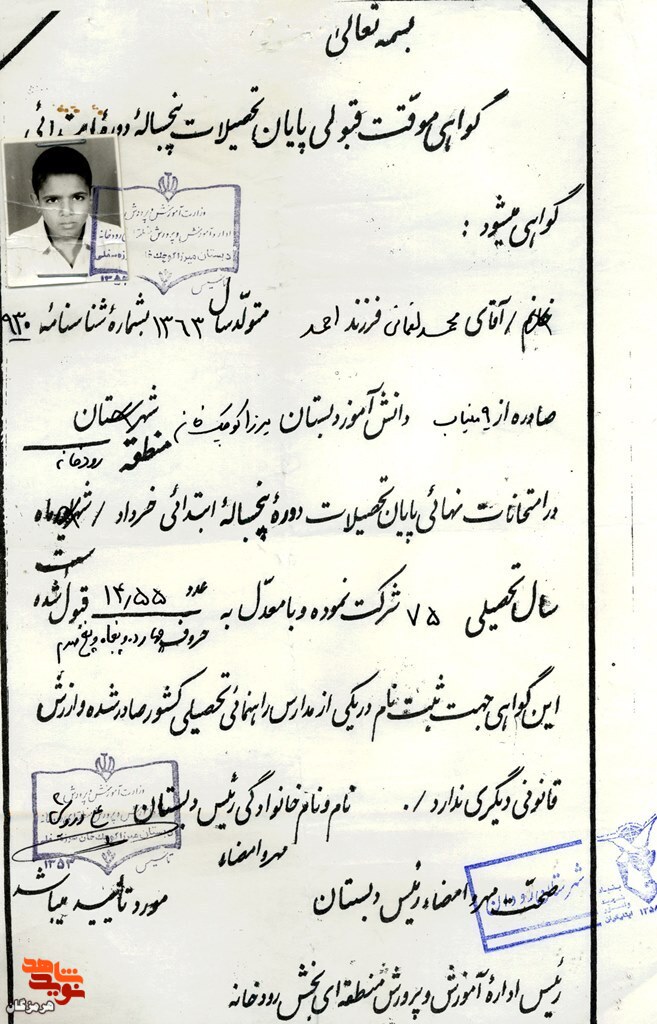 بسمه تعالی
گواهی موقت قبولی پایان تحصیلات پنجسالهٔ دورهٔ ابتدائی
وزارت آموزش و پرورش
اداره آموزش و پرورش منطقه رودخانه
دبستان میرزا کوچک خان
تاسیس ۱۳۵۲
گواهی میشود :
خانم / آقای محمد لغمانی فرزند احمد متولد سال ۱۳۶۳ بشمارهٔ شناسنامهٔ ۹۳۰
صادره از میناب دانش آموز دبستان میرزا کوچک خان شهرستان
منطقه رودخانه
در امتحانات نهائی پایان تحصیلات دورهٔ پنجسالهٔ ابتدائی خرداد / شهریور ماه
سال تحصیلی ۷۵ شرکت نموده و با معدل به عدد ۱۴/۵۵ قبول شده است
حروف چهارده و پنجاه و پنج صدم
این گواهی جهت ثبت نام در یکی از مدارس راهنمائی تحصیلی کشور صادر شده و ارزش
قانونی دیگری ندارد /. نام و نام خانوادگی رئیس دبستان
مهر و امضاء
وزارت آموزش و پرورش
دبستان میرزا کوچک خان
تاسیس ۱۳۵۲
صحت مهر و امضاء رئیس دبستان مورد تأیید میباشد
رئیس ادارهٔ آموزش و پرورش منطقه ای بخش رودخانه
نوید شاهد
هرمزگان